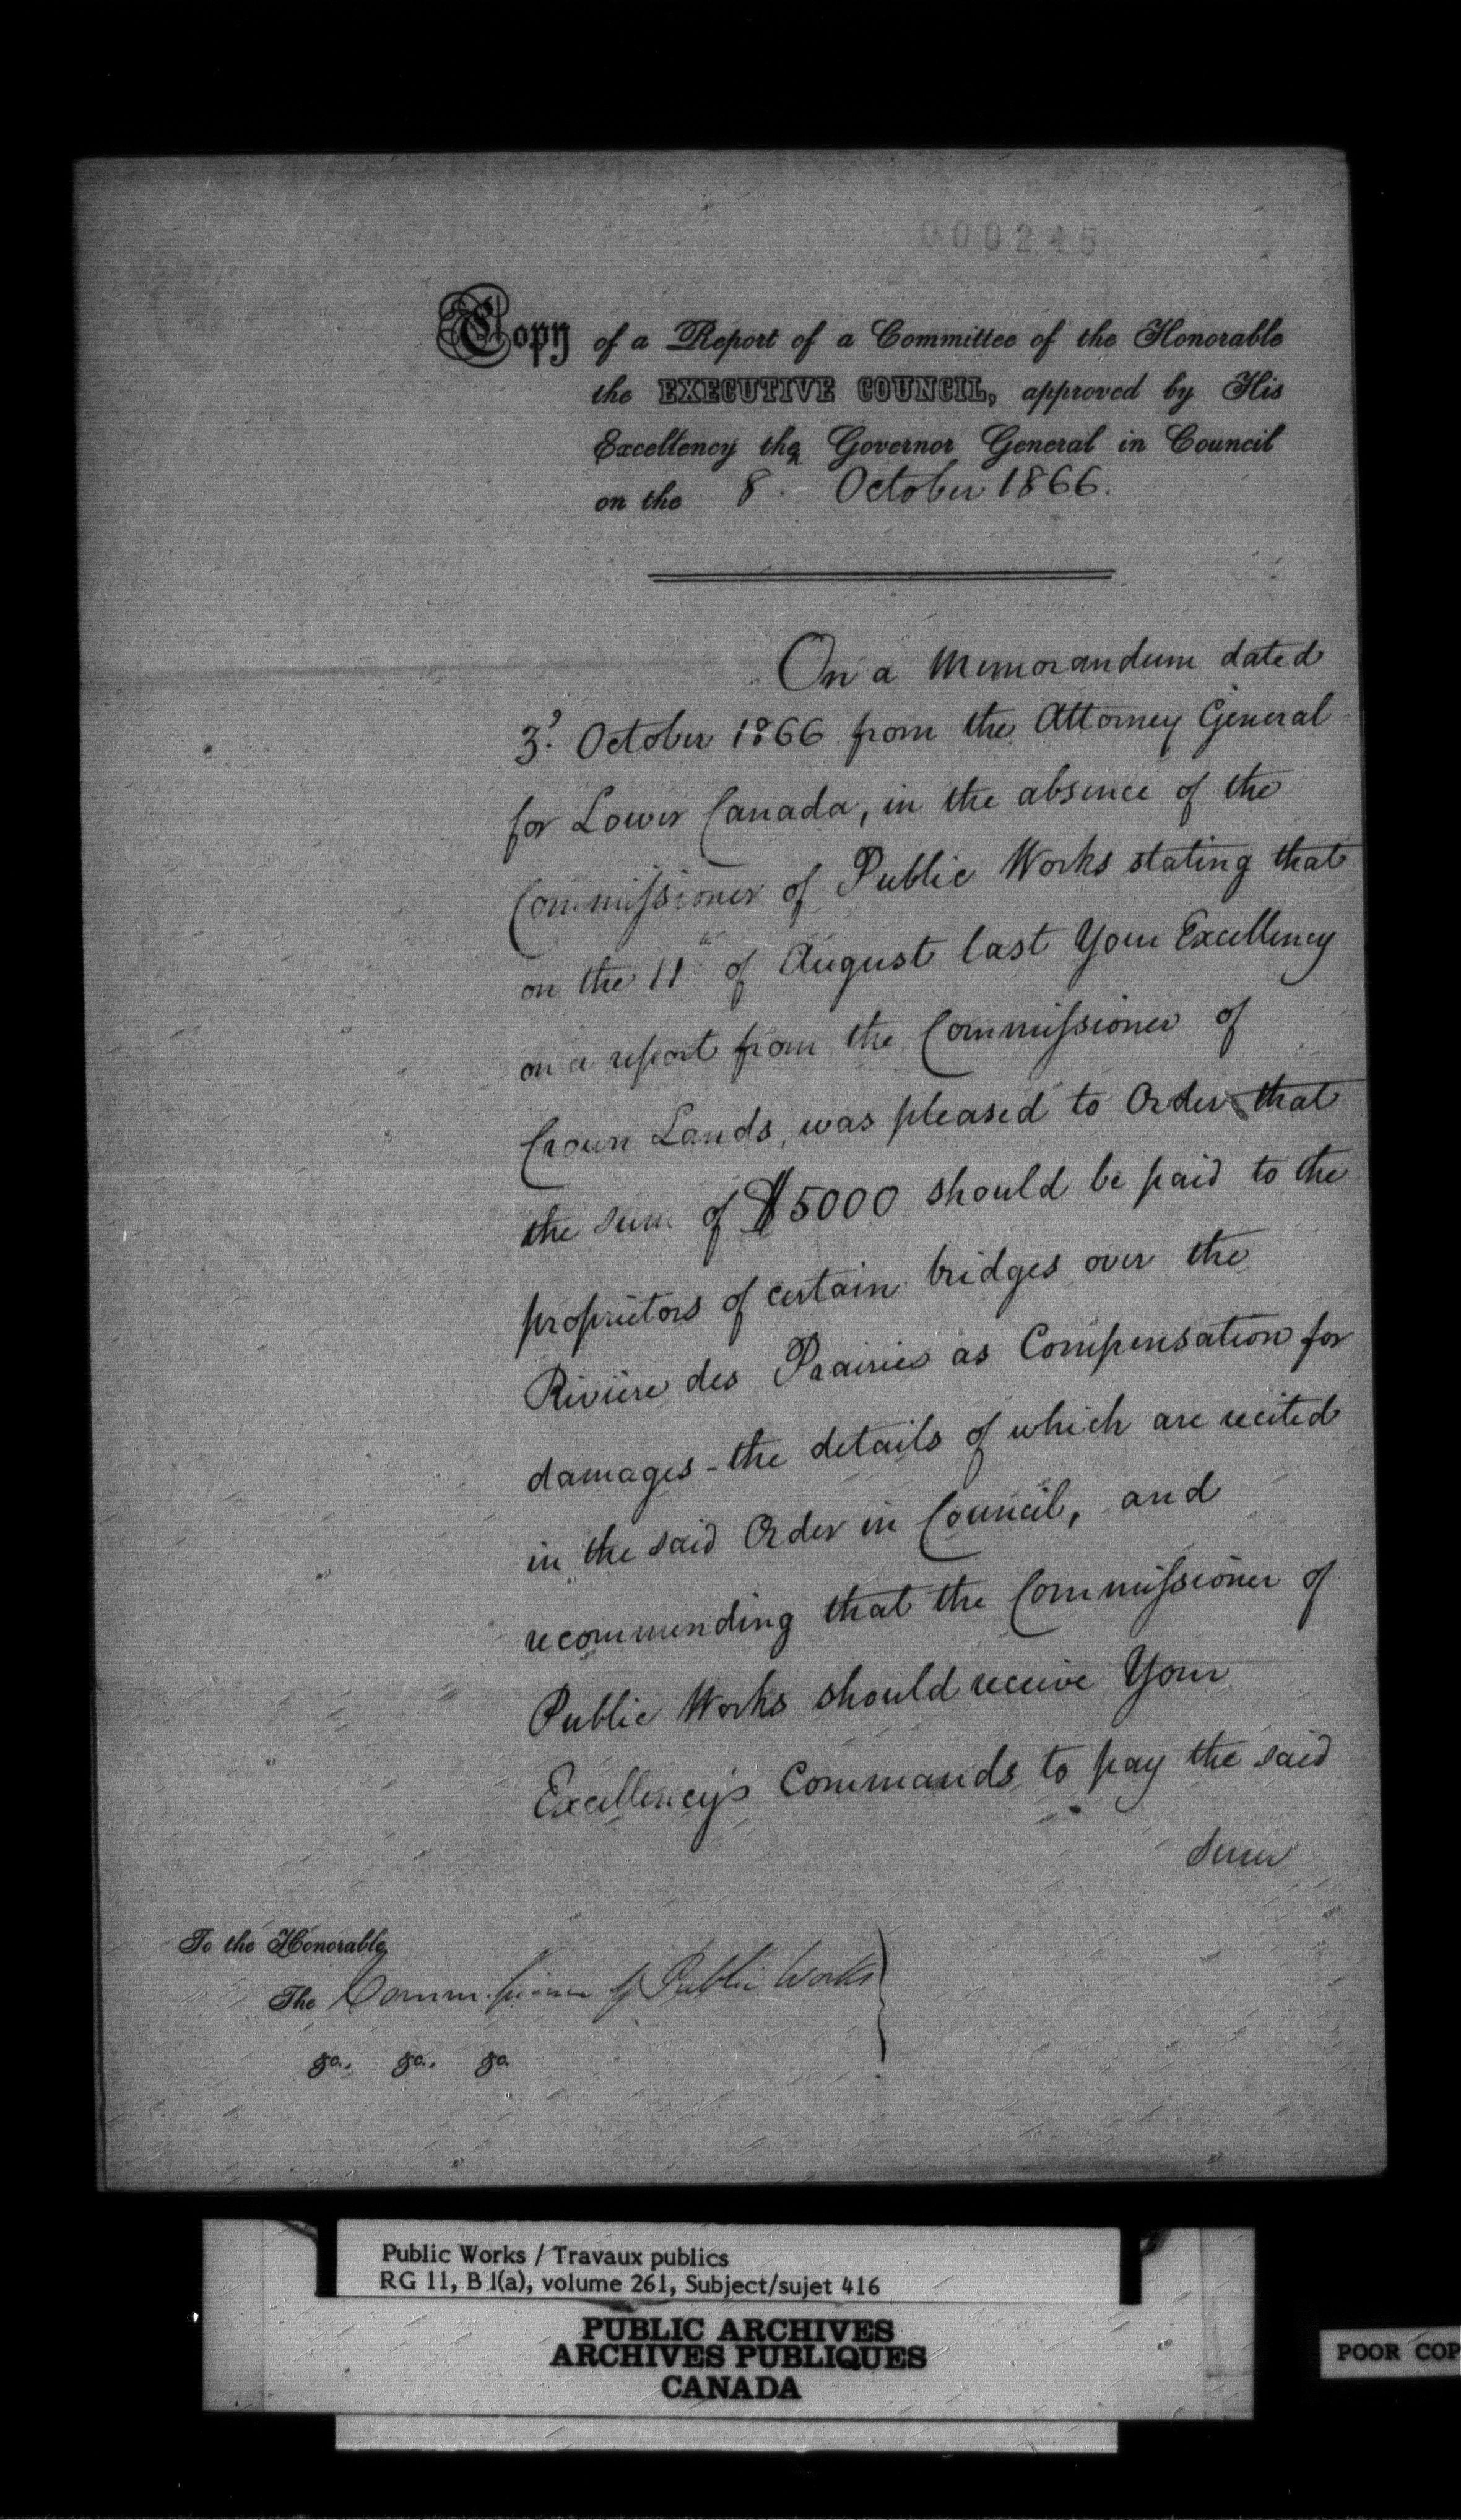 000245
Copy of a Report of a Committee of the Honorable
the EXECUTIVE COUNCIL, approved by His
Excellency the Governor General in Council
on the 8. October 1866.
On a Memorandum dated
3d. October 1866 from the Attorney General
for Lower Canada, in the absence of the
Commissioner of Public Works stating that
on the 11th of August last Your Excellency
on a report from the Commissioner of
Crown Lands, was pleased to Order that
the sum of $5000 should be paid to the
proprietors of certain bridges over the
Rivière des Prairies as Compensation for
damages - the details of which are recited
in the said Order in Council, and
recommending that the Commissioner of
Public Works should receive Your
Excellency's Commands to pay the said
sum
To the Honorable
The Commissioner of Public Works
&c., &c., &c.
Public Works / Travaux publics
RG 11, B 1(a), volume 261, Subject/sujet 416
PUBLIC ARCHIVES
ARCHIVES PUBLIQUES
CANADA
POOR COP